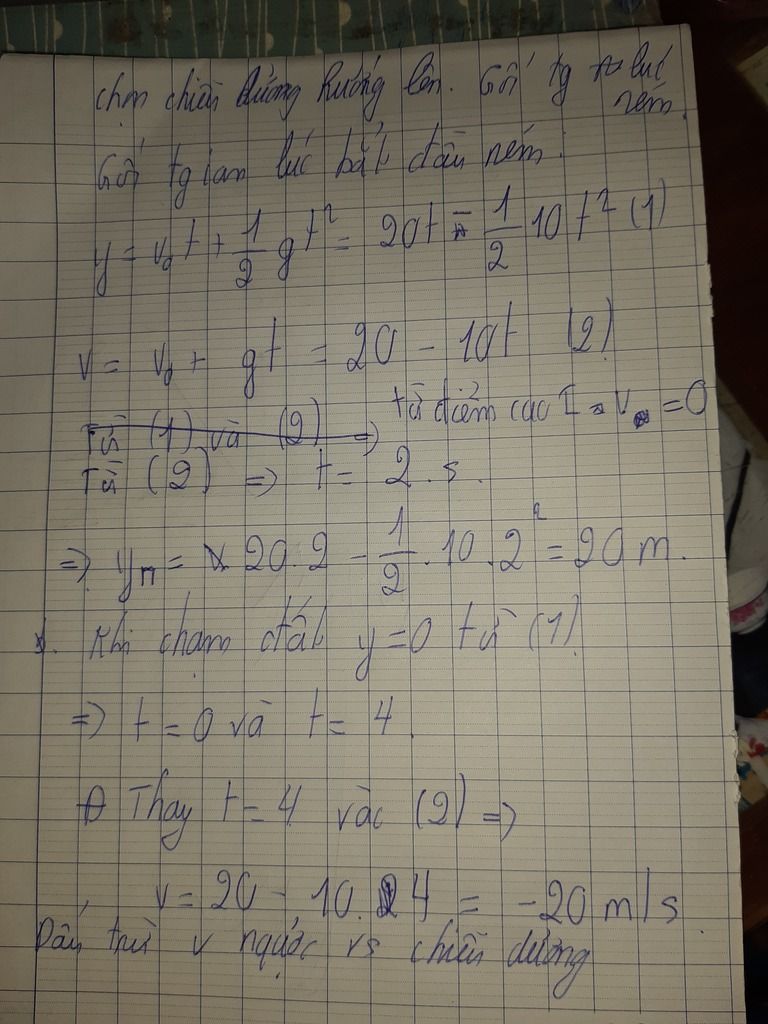 chọn chiều dương hướng lên. Gốc tg lúc ném.
Gốc tgian lúc bắt đầu ném.
y = v₀t + 1/2 gt² = 20t - 1/2 10t² (1)
v = v₀ + gt = 20 - 10t (2)
từ điểm cao I v = 0
Từ (1) và (2) =>
Từ (2) => t = 2.s.
=> yₘ = 20.2 - 1/2.10.2² = 20 m.
Khi chạm đất y = 0 từ (1)
=> t = 0 và t = 4.
Thay t = 4 vào (2) =>
v = 20 - 10.4 = -20 m/s.
Dấu trừ v ngược vs chiều dương